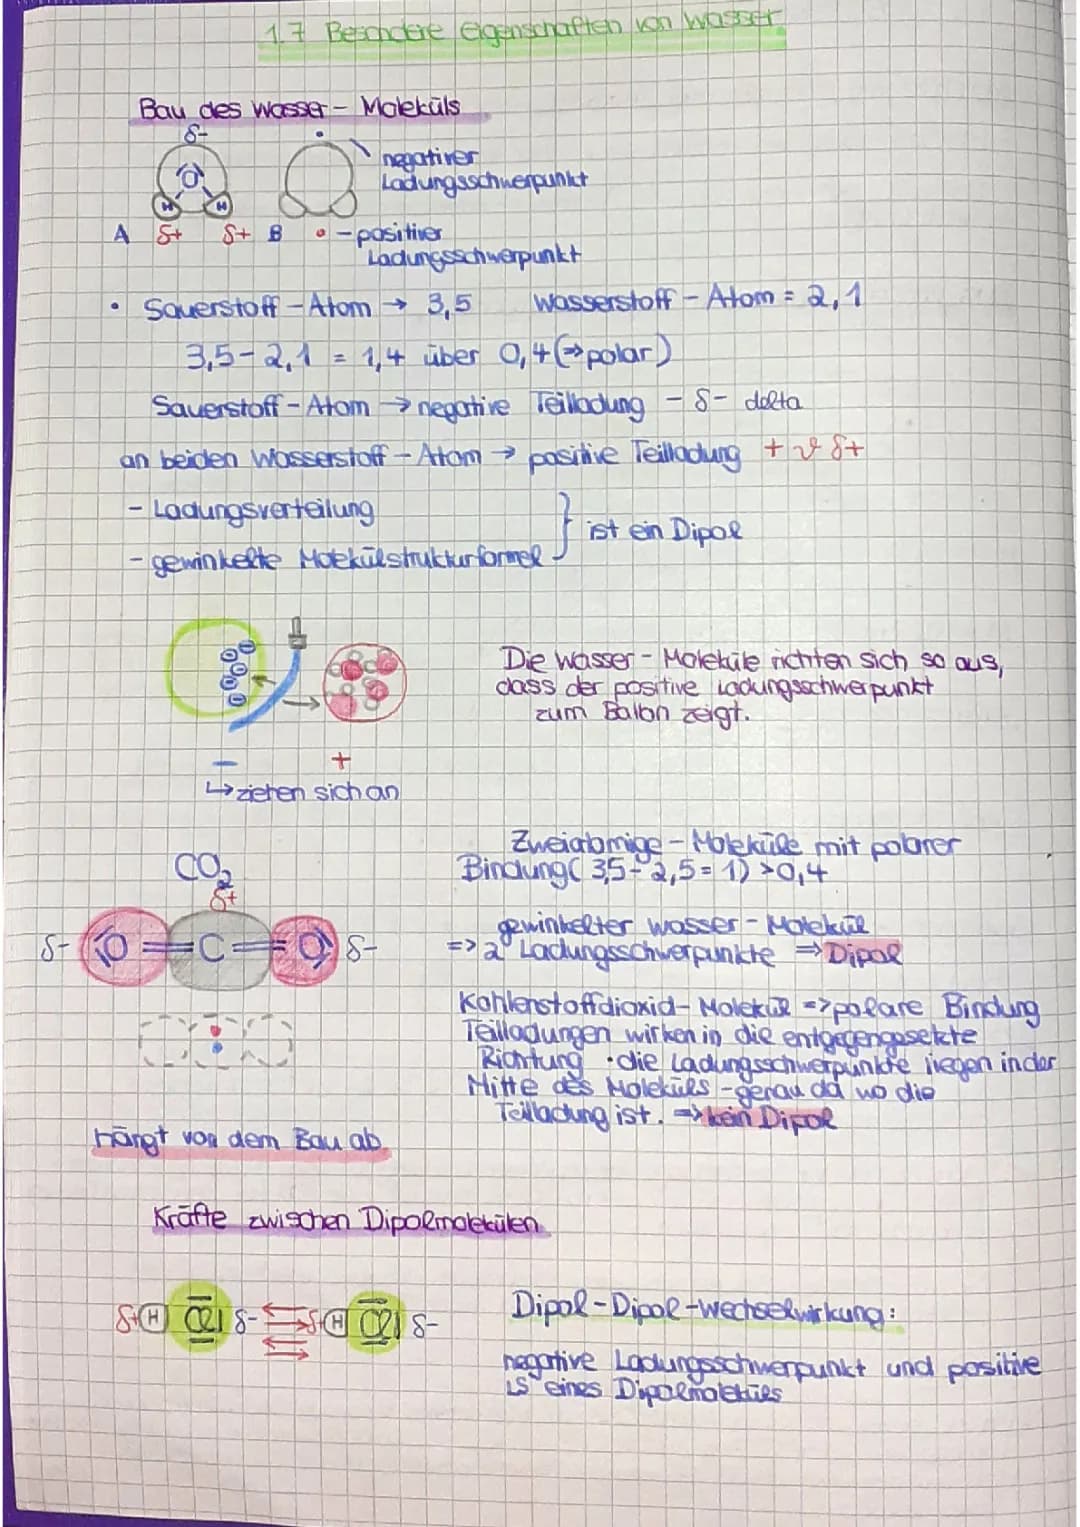 1.7 Besondere Eigenschaften von Wasser
Bau des Wasser - Moleküls
δ-
O
H H
negativer
Ladungsschwerpunkt
A δ+ δ+ B - positiver
Ladungsschwerpunkt
• Sauerstoff - Atom → 3,5 Wasserstoff - Atom = 2,1
3,5 - 2,1 = 1,4 über 0,4 (⇒ polar)
Sauerstoff - Atom → negative Teilladung - δ- delta
an beiden Wasserstoff - Atom → positive Teilladung + δ+
- Ladungsverteilung
- gewinkelte Molekülstrukturformel } ist ein Dipol
Die Wasser - Moleküle richten sich so aus,
dass der positive Ladungsschwerpunkt
zum Ballon zeigt.
- +
↳ ziehen sich an
CO₂
δ+
δ- O = C = O δ-
Zweiatomige - Moleküle mit polarer
Bindung ( 3,5 - 2,5 = 1) > 0,4
gewinkelter Wasser - Molekül
=> 2 Ladungsschwerpunkte ⇒ Dipol
Kohlenstoffdioxid - Molekül => polare Bindung
Teilladungen wirken in die entgegengesetzte
Richtung · die Ladungsschwerpunkte liegen in der
Mitte des Moleküls - genau da wo die
Teilladung ist. ⇒ kein Dipol
Hängt von dem Bau ab
Kräfte zwischen Dipolmolekülen
δ+ H Cl δ- δ+ H Cl δ-
Dipol - Dipol - Wechselwirkung:
negative Ladungsschwerpunkt und positive
LS eines Dipolmoleküls